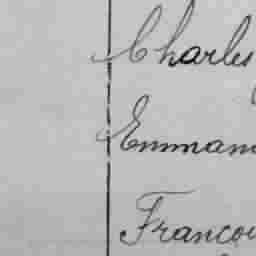 Charles
Emman
Francoi